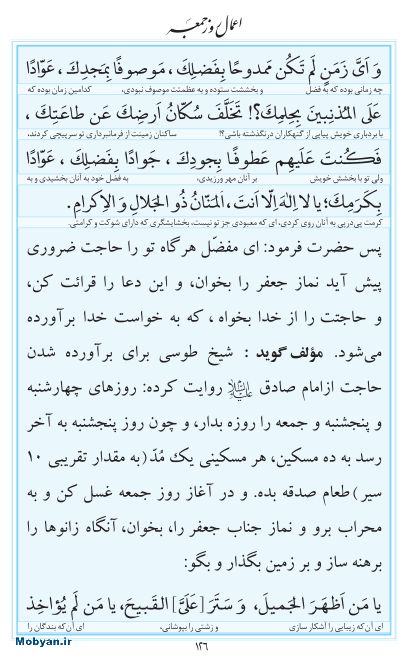 اعمال روز جمعه
وَ اَیَّ زَمَنٍ لَم تَکُن مَمدوحًا بِفَضلِكَ، مَوصوفًا بِمَجدِكَ، عَوّادًا
چه زمانی بوده که به فضل و بخششت ستوده و به عظمتت موصوف نبودی، کدامین زمان بوده که
عَلَی المُذنِبینَ بِحِلمِكَ؟! تَخَلَّفَ سُکّانُ اَرضِكَ عَن طاعَتِكَ،
با بردباری خویش پیاپی از گنهکاران درنگذشته باشی؟! ساکنان زمینت از فرمانبرداری تو سرپیچی کردند،
فَکُنتَ عَلَیهِم عَطوفًا بِجودِكَ، جَوادًا بِفَضلِكَ، عَوّادًا
ولی تو با بخشش خویش بر آنان مهر ورزیدی، به فضل خود به آنان بخشیدی و به
بِکَرَمِكَ؛ یا لا اِلهَ اِلّا اَنتَ، المَنّانُ ذُو الجَلالِ وَ الاِکرامِ.
کرمت پی‌درپی به آنان روی کردی، ای که معبودی جز تو نیست، بخشایشگری که دارای شوکت و کرامتی.
پس حضرت فرمود: ای مفضّل هرگاه تو را حاجت ضروری
پیش آید نماز جعفر را بخوان، و این دعا را قرائت کن،
و حاجتت را از خدا بخواه ، که به خواست خدا برآورده
می‌شود. مؤلف گوید : شیخ طوسی برای برآورده شدن
حاجت ازامام صادق علیه‌السلام روایت کرده: روزهای چهارشنبه
و پنجشنبه و جمعه را روزه بدار، و چون روز پنجشنبه به آخر
رسد به ده مسکین، هر مسکینی یك مُدّ(به مقدار تقریبی ۱۰
سیر)طعام صدقه بده. و در آغاز روز جمعه غسل کن و به
محراب برو و نماز جناب جعفر را، بخوان، آنگاه زانوها را
برهنه ساز و بر زمین بگذار و بگو:
یا مَن اَظهَرَ الجَمیلَ، وَ سَتَرَ [عَلَیَّ] القَبیحَ، یا مَن لَم یُؤاخِذ
ای آن‌که زیبایی را آشکار سازی و زشتی را بپوشانی، ای آن‌که بندگان را
Mobyan.ir
۱۲۶